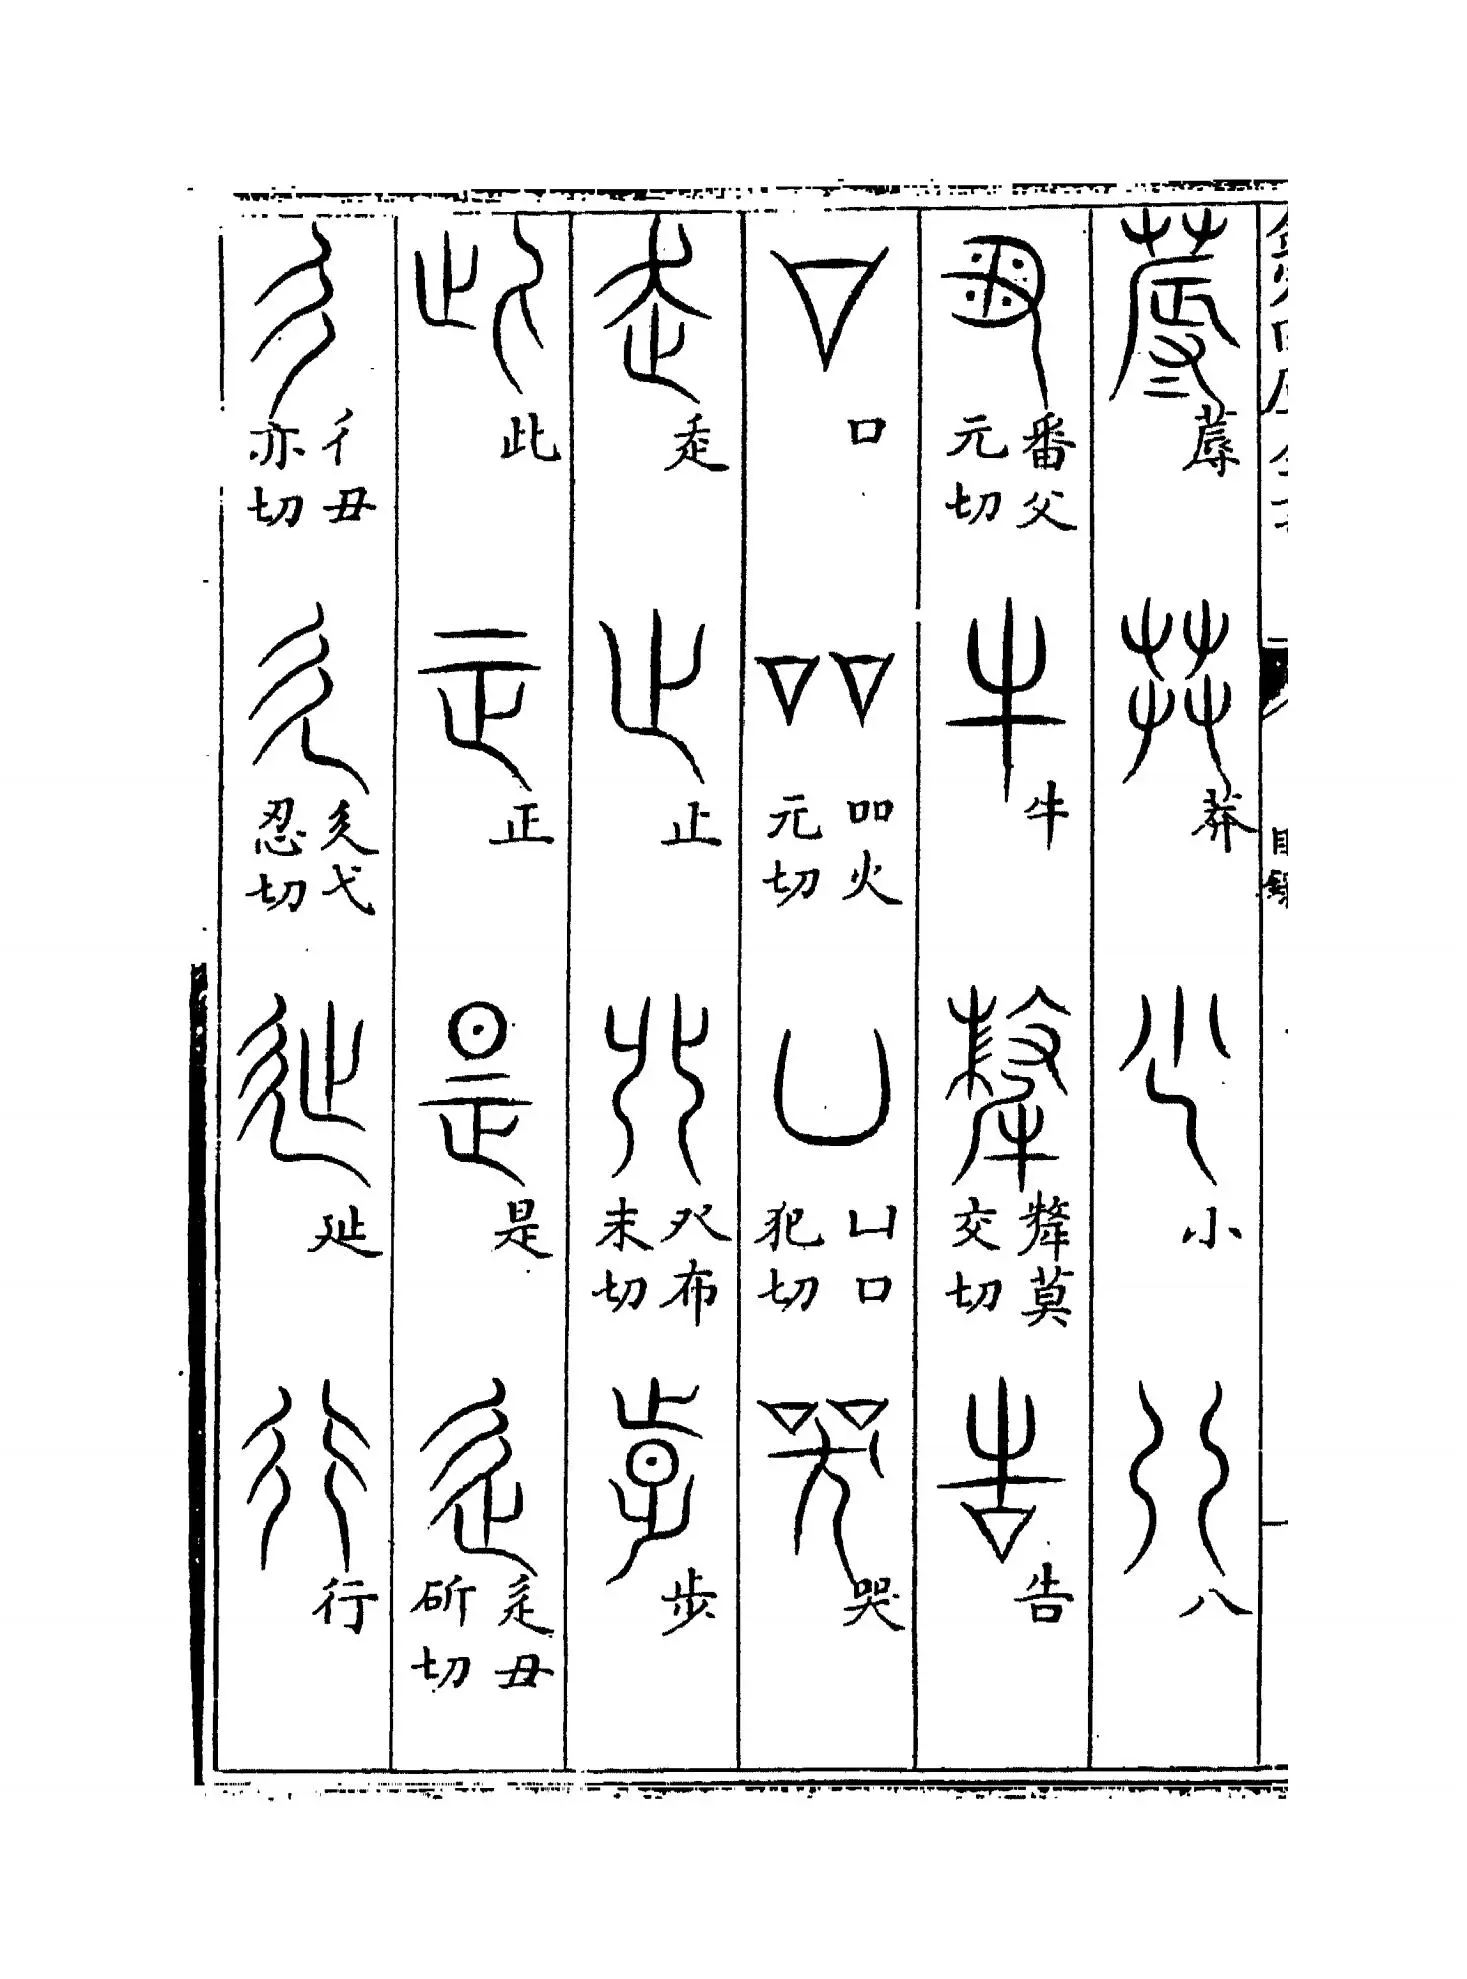 目錄
蓐 莽 小 八
番父元切 牛 犛莫交切 告
口 吅火元切 凵口犯切 哭
走 止 癶布末切 步
此 正 是 辵丑斫切
彳丑亦切 廴弋忍切 㢟 行